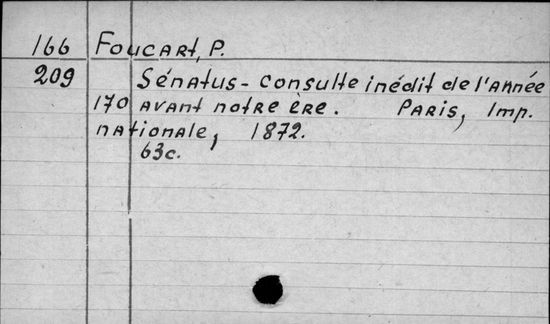 166 Foucart, P.
209 Sénatus-consulte inédit de l'année
170 avant notre ère. Paris, Imp.
nationale, 1872.
63c.